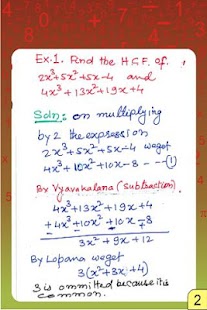 Ex.1. Find the H.C.F. of
2x³+5x²+5x-4 and
4x³+13x²+19x+4
Soln: on multiplying
by 2 the expression
2x³+5x²+5x-4 we get
4x³+10x²+10x-8 --- (1)
By Vyavakalana (subtraction).
4x³+13x²+19x+4
+4x³+10x²+10x-8
3x²+9x+12
By Lopana we get
3(x²+3x+4)
3 is ommitted because its
common.
2